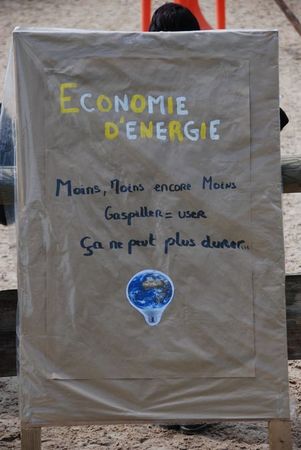 ECONOMIE
D'ENERGIE
Moins, Moins encore Moins
Gaspiller = user
Ça ne peut plus durer...